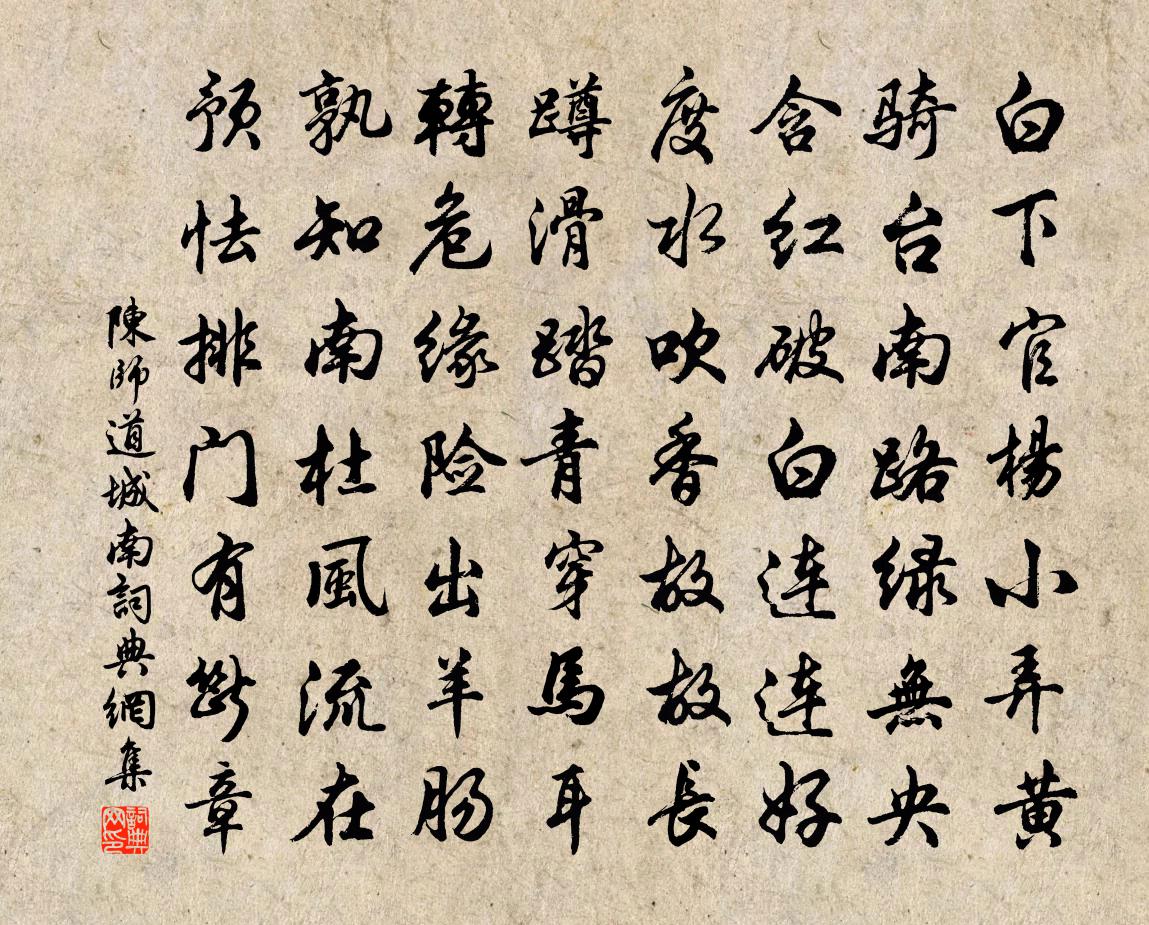 白下官楊小弄黄
骑台南路绿無央
含红破白連連好
度水吹香故故長
蹲滑踏青穿馬耳
轉危缘险出羊肠
孰知南杜風流在
预怯排门有斷章
陳師道城南詞典網集
詞典网印